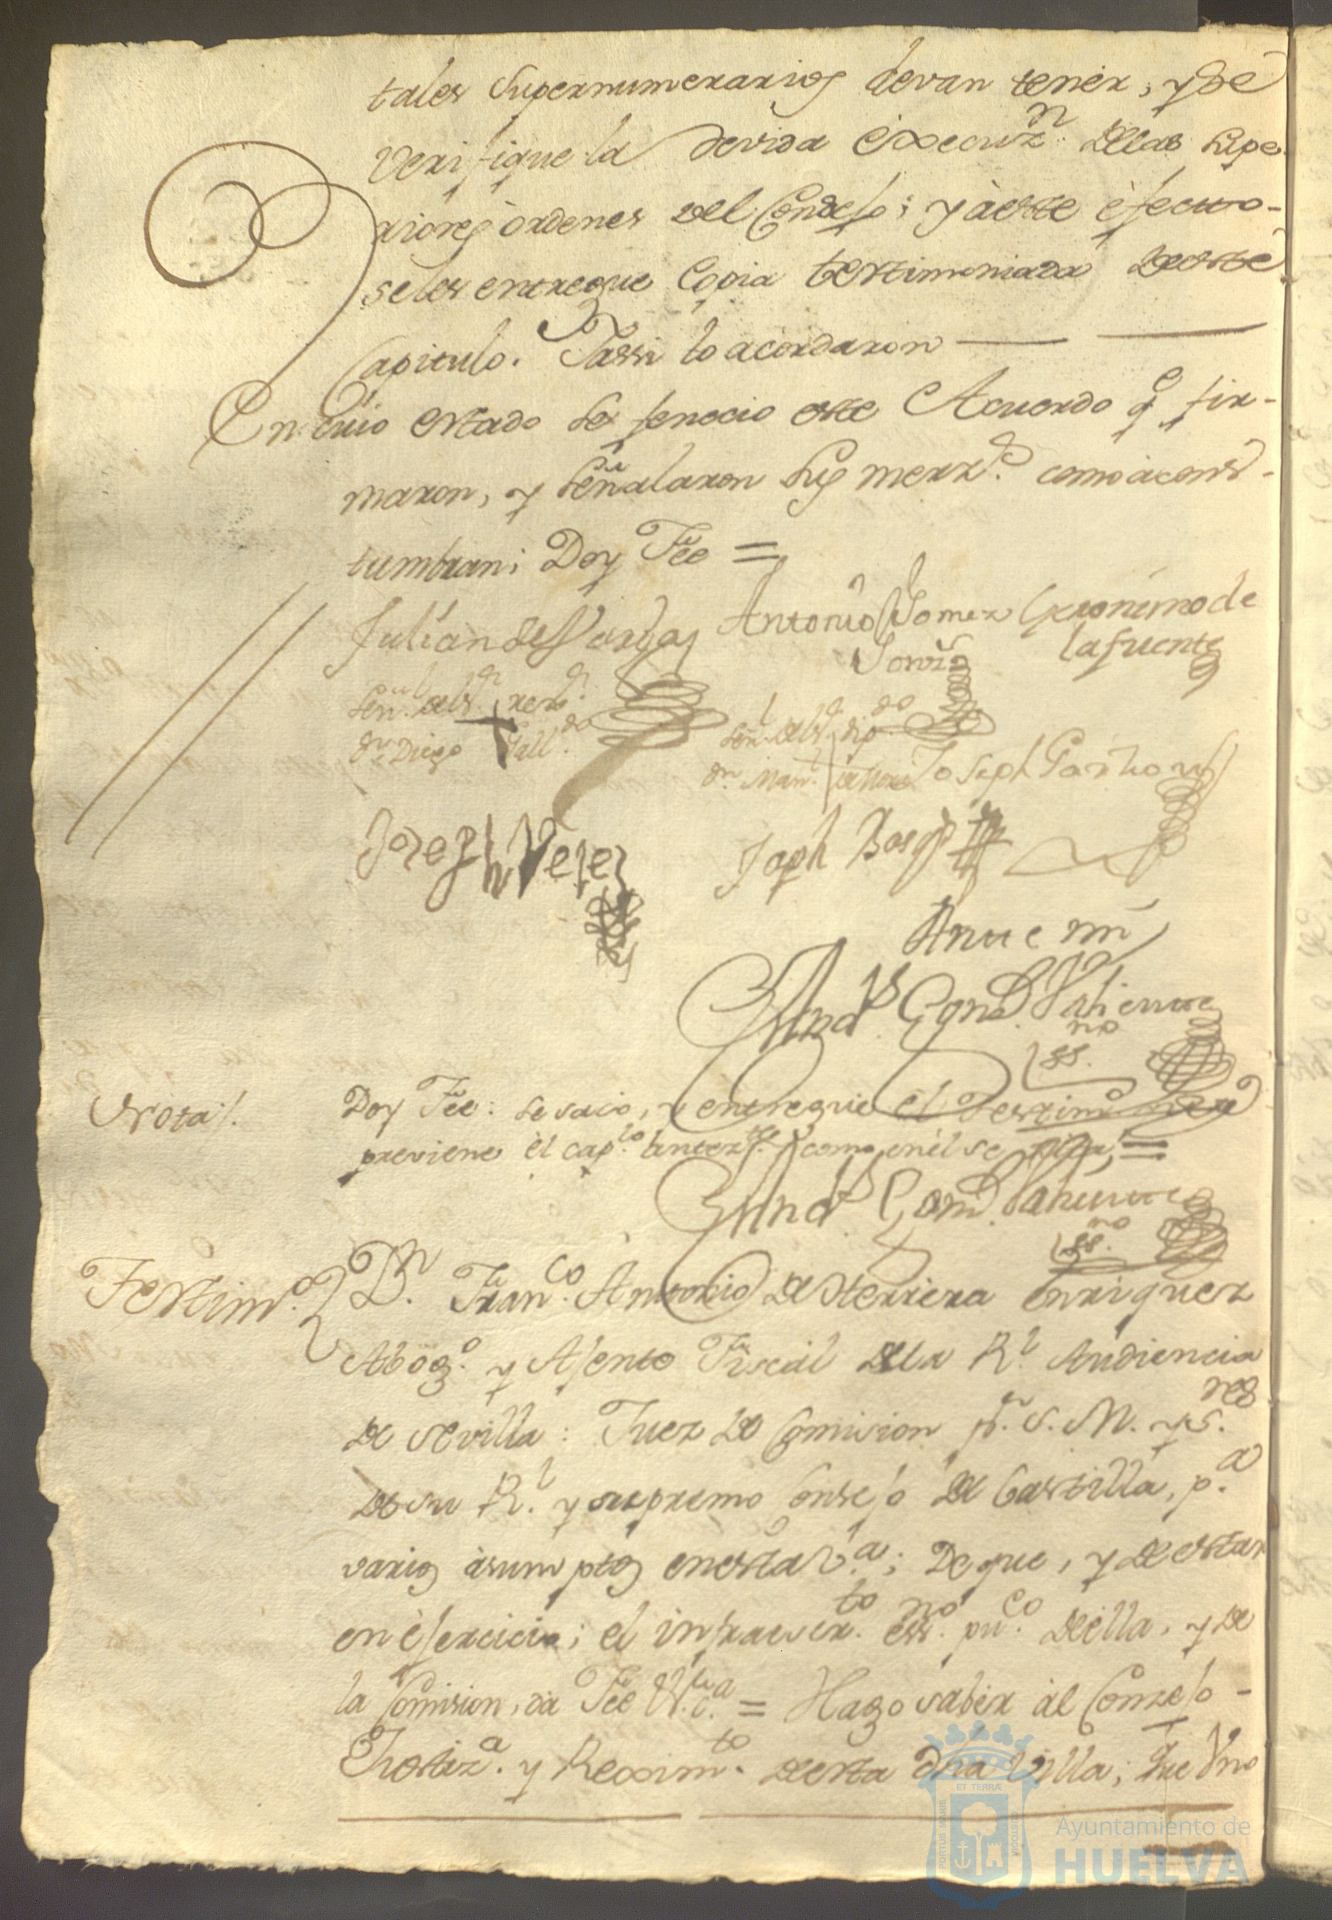 tales Supernumerarios devan tener, y Se
Verifique la devida Execuz.n dellas supe
riores ordenes del Consejo; y à este èfecto-
se les entregue Copia testimoniada deeste
Capitulo. Yassi lo acordaron
En cuio estado se fenecio este Acuerdo q.e fir-
maron, y señalaron sus merz.s como àcons-
tumbran; Doy Fée =
Julian de Vargas
Antonio Gomez
Geronimo de
la fuente
Señ.l del s.r
d.n Diego
Señ.l del s.r dip.do
d.n Man.l
Joseph
Joseph Velez
Joseph
Ante mi
And.s Gonz. Patiente
ss.no
Nota/.
Doy Fée: se sacó, y entregué el Testim.o que
previene èl cap.lo antez.te como en èl se =
And.s Gonz. Patiente
ss.no
Testim.o
D.n Fran.co Antonio de Herrera enriquez
Abog.o y Ajente Fiscal de la R.l Audiencia
de Sevilla: Juez de Comision p.r S. M. y s.res
de su R.l y supremo Consejo de Castilla, p.a
varios àsumptos en esta v.a; de que, y de estar
en èjercicio; el infraescr.to ess.no pu.co de ella, y de
la Comision, da Fée = Hago saber àl Conzejo-
Justiz.a y Rexim.to de esta dha Villa; Fue Vno
Ayuntamiento de
HUELVA